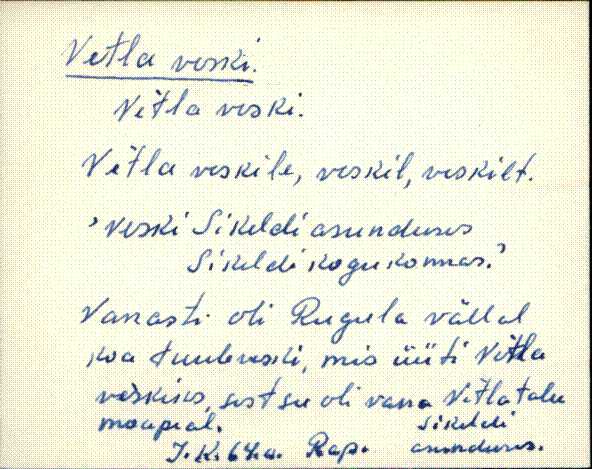 Vetla veski.
Vetla veski.
Vetla veskile, veskil, veskilt.
'veski Sikeldi asunduses
Sikeldi kogukonnas.'
Vanasti oli Rugula vällal
koa tuuleveski, mis üiti Vetla
veskiks, sest su oli vana Vetla talu
moapial.
J.K. 64.a. Rap. Sikeldi
asunduses.